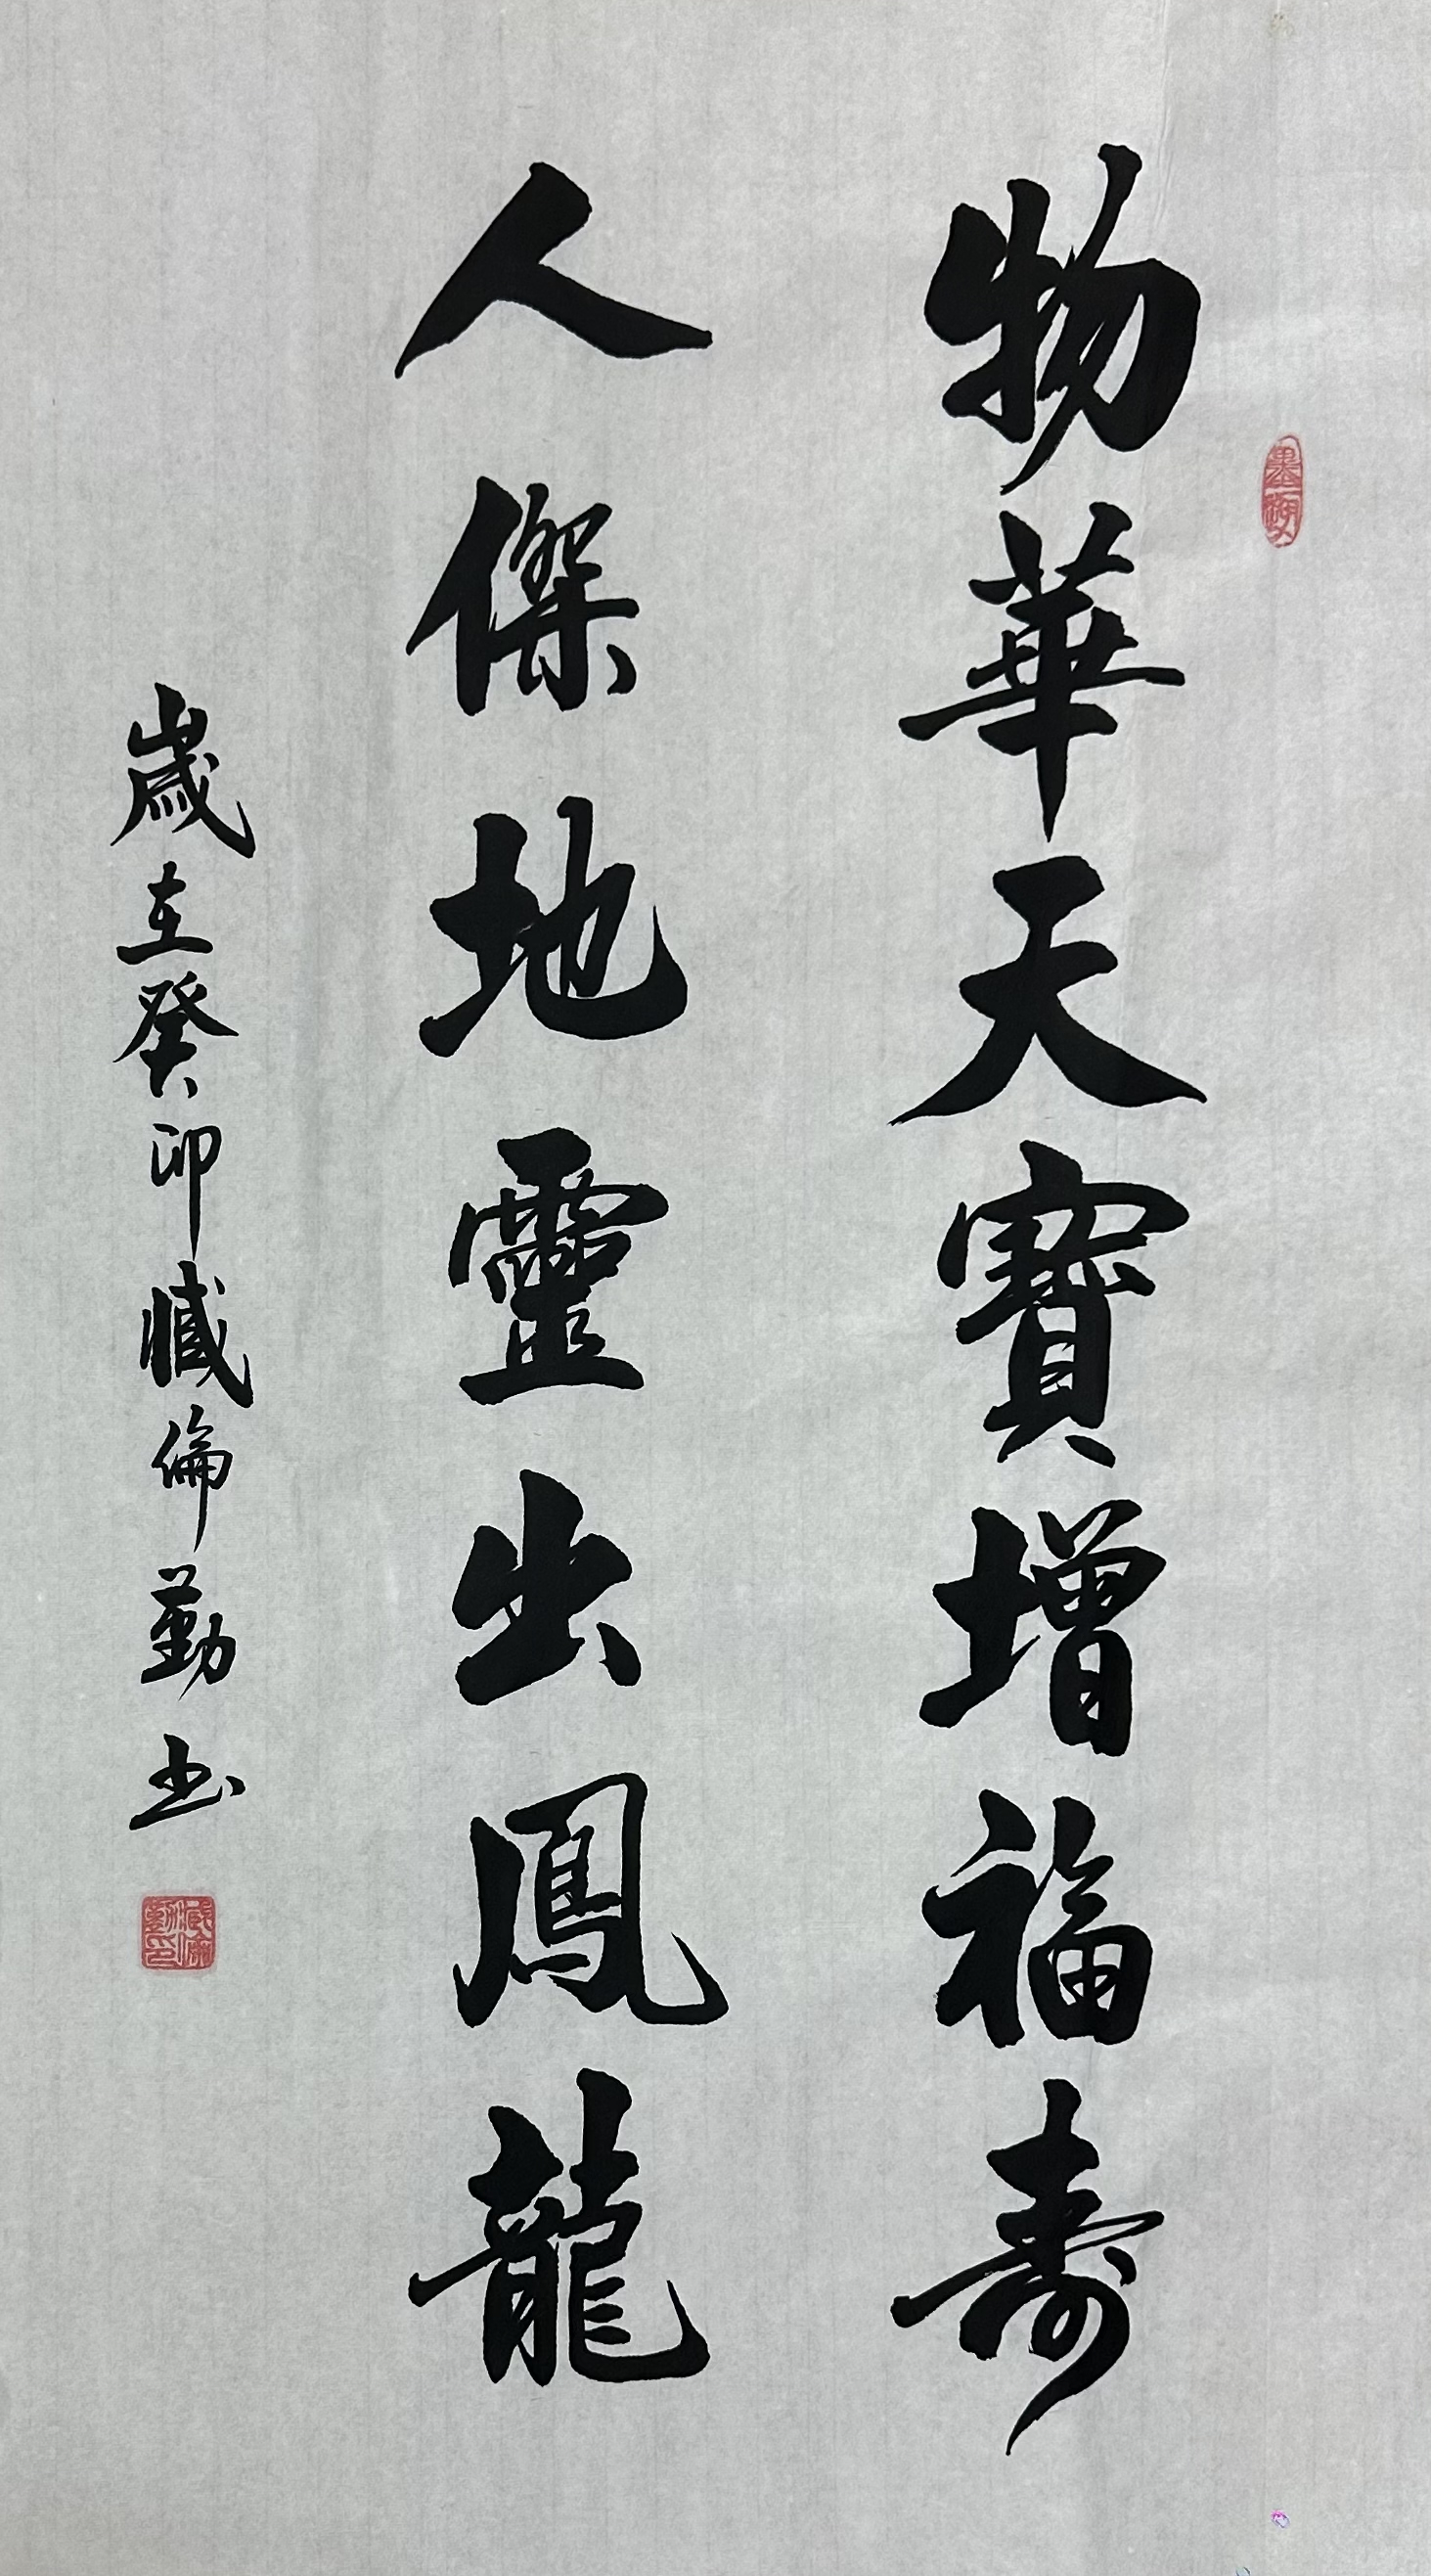 物華天寶增福壽
人傑地靈出鳳龍
歲在癸卯臧倫勤书
臧倫勤印